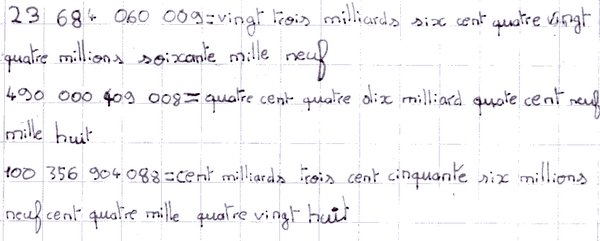 23 684 060 009 = vingt trois milliards six cent quatre vingt
quatre millions soixante mille neuf
490 000 409 008 = quatre cent quatre dix milliard quate cent neuf
mille huit
100 356 904 088 = cent milliards trois cent cinquante six millions
neuf cent quatre mille quatre vingt huit